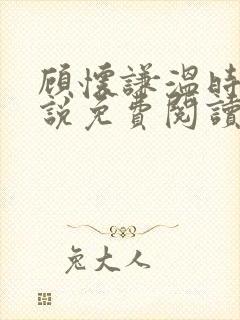 顾懷謙溫時
說免費閱讀
兔大人